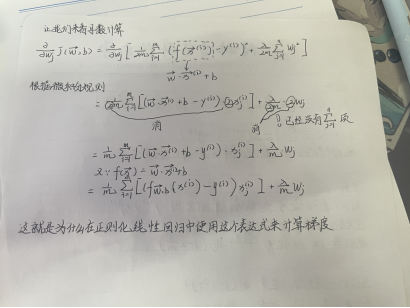 让我们来看导数计算
∂/∂wj J(w⃗,b) = ∂/∂wj [1/2m Σ(i=1..m) (f(x⃗^(i)) - y^(i))² + λ/2m Σ(j=1..n) wj²]
w⃗·x⃗^(i)+b
规则
= 1/2m Σ(i=1..m) [(w⃗·x⃗^(i) + b - y^(i)) 2xj^(i)] + λ/2m · 2wj
消 消 已经没有 Σ(j=1..n) 项
= 1/m Σ(i=1..m) [(w⃗·x⃗^(i) + b - y^(i))·xj^(i)] + λ/m wj
又∵ f(x⃗) = w⃗·x⃗^(i)+b
= 1/m Σ(i=1..m) [(f w⃗,b (x⃗^(i)) - y^(i)) xj^(i)] + λ/m wj
这就是为什么在正则化线性回归中使用这个表达式来计算梯度